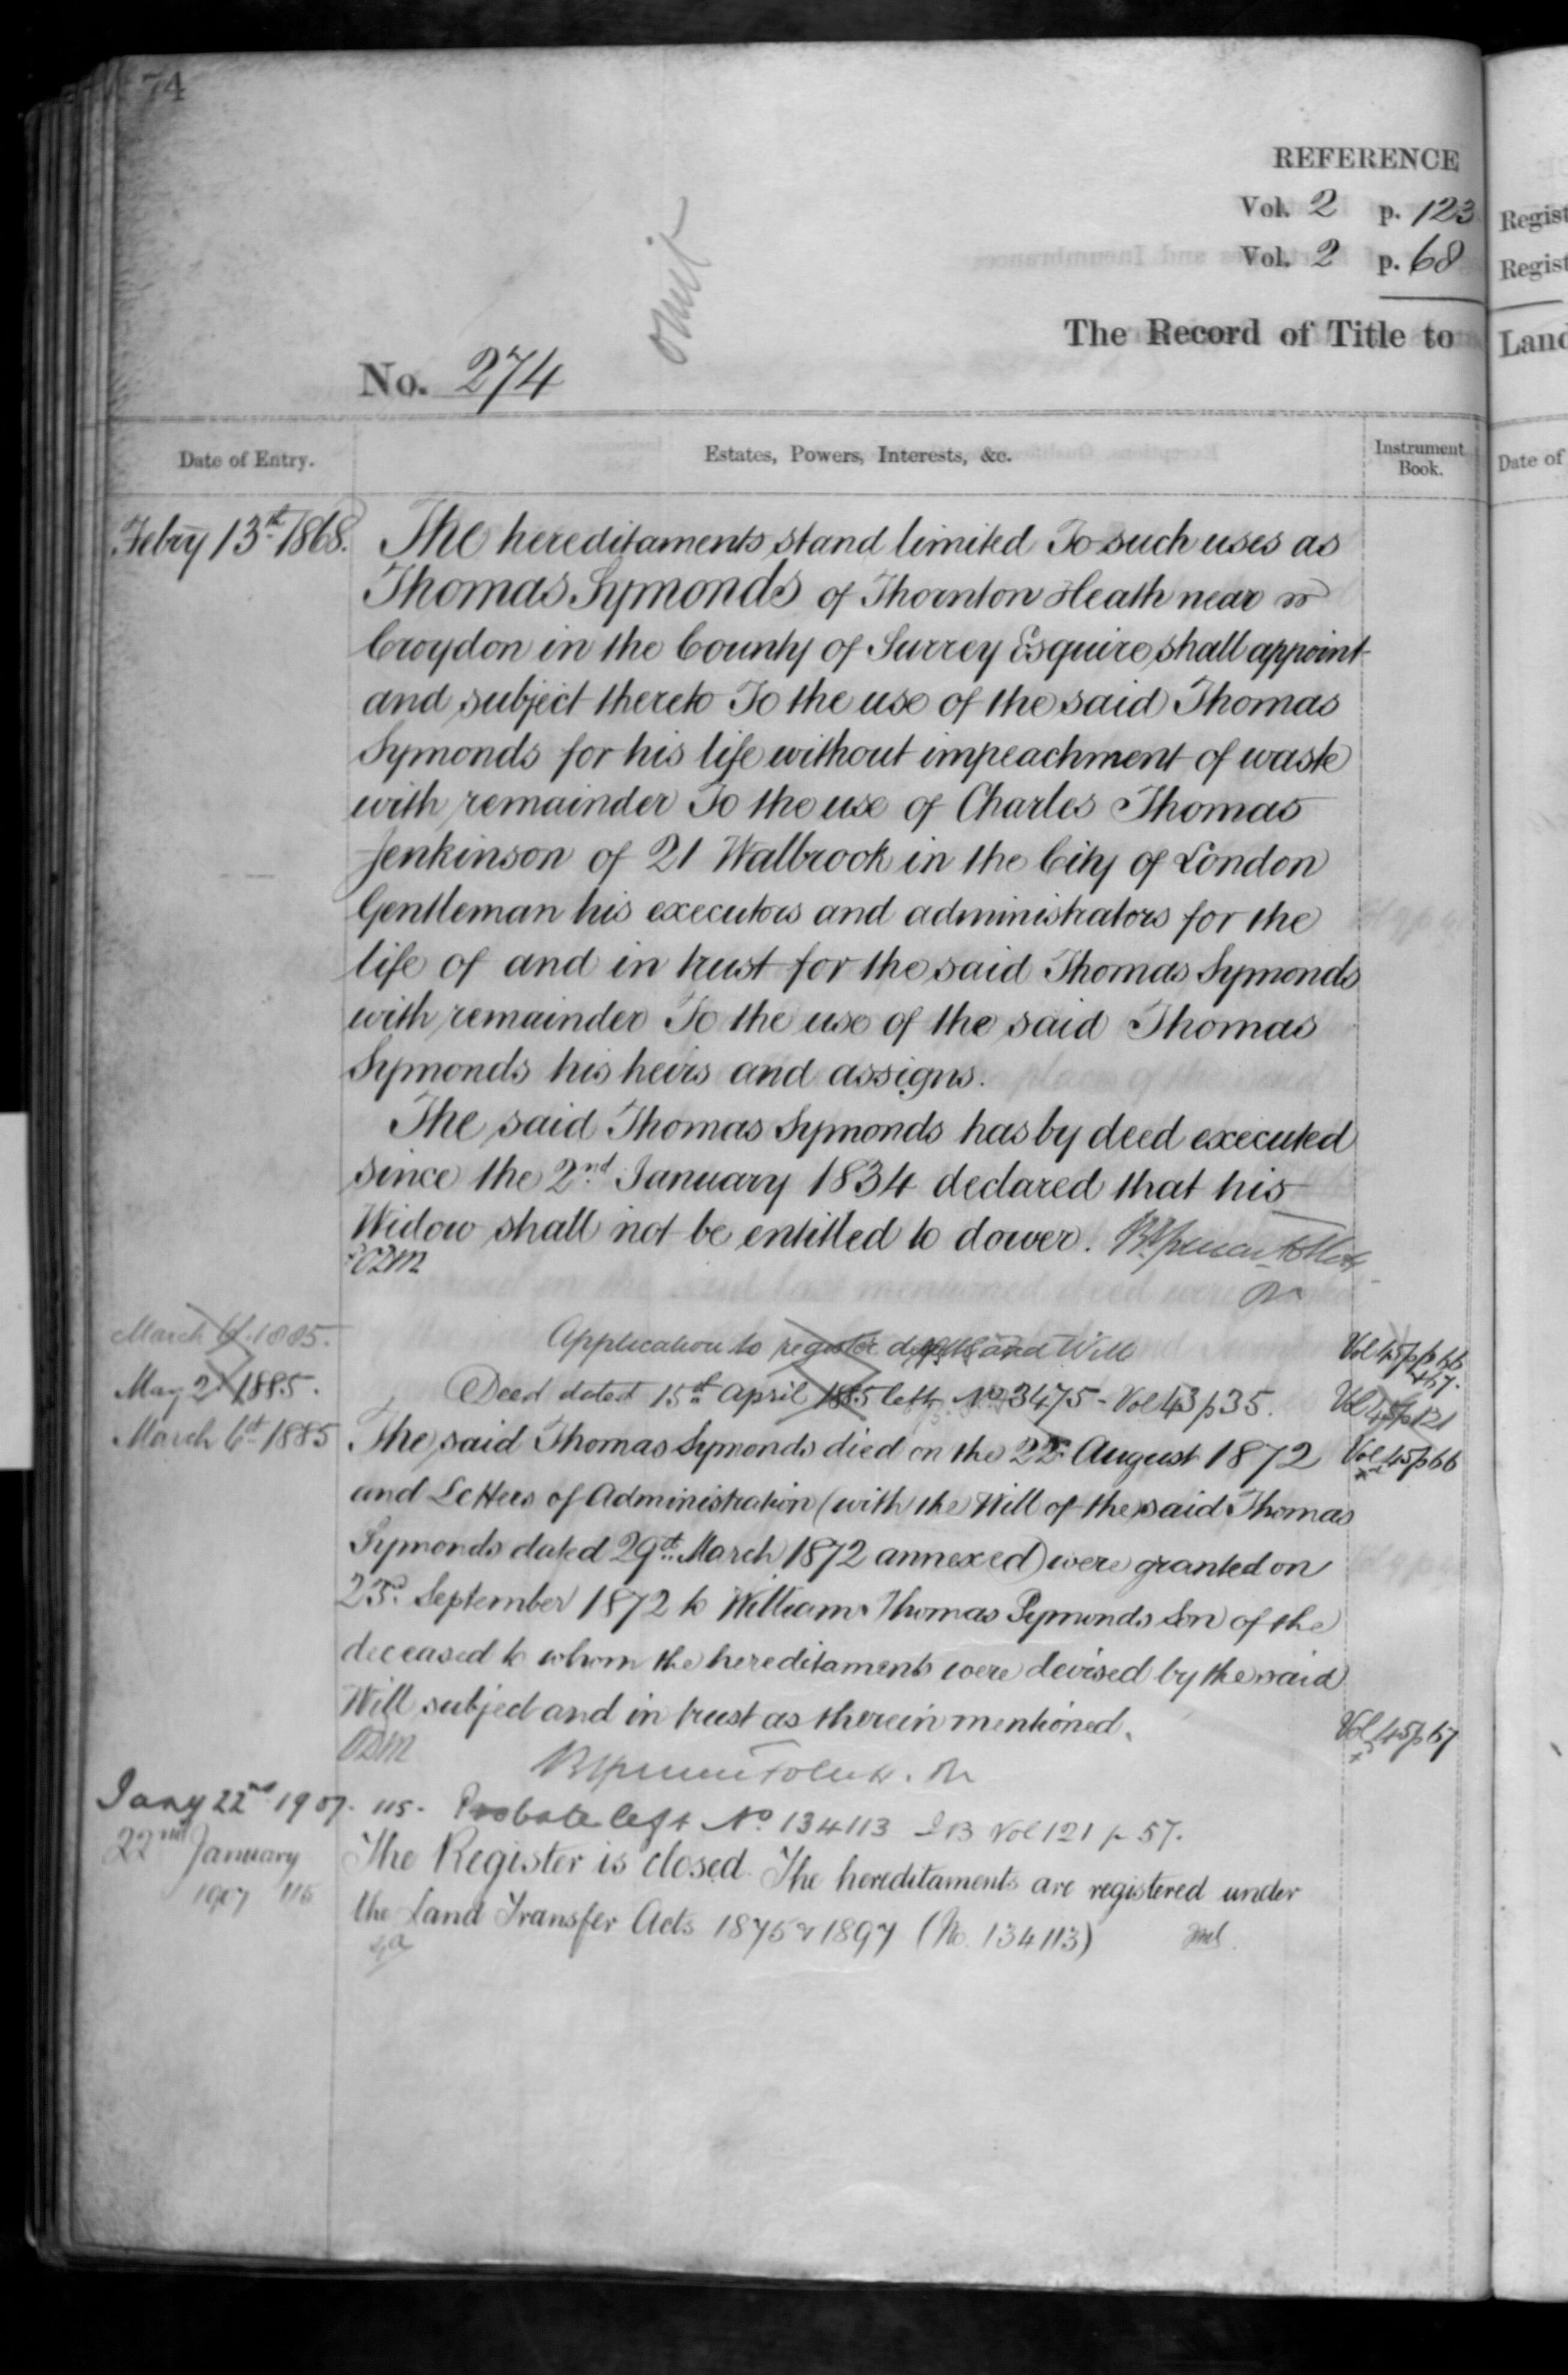 74
REFERENCE
Vol. 2 p. 123
Vol. 2 p. 68
omit
The Record of Title to
No. 274
Date of Entry.
Estates, Powers, Interests, &c.
Instrument Book.
Febry 13th 1868.
The hereditaments stand limited To such uses as
Thomas Symonds of Thornton Heath near
Croydon in the County of Surrey Esquire shall appoint
and subject thereto To the use of the said Thomas
Symonds for his life without impeachment of waste
with remainder To the use of Charles Thomas
Jenkinson of 21 Walbrook in the City of London
Gentleman his executors and administrators for the
life of and in trust for the said Thomas Symonds
with remainder To the use of the said Thomas
Symonds his heirs and assigns.
The said Thomas Symonds has by deed executed
since the 2nd January 1834 declared that his
Widow shall not be entitled to dower.
March 6. 1885. Application to register death and Will Vol 45 p p 66 & 67.
May 2. 1885. Deed dated 15th April 1885 left No 3475 - Vol 43 p 35. Vol 45 p 121
March 6th 1885 The said Thomas Symonds died on the August 1872 Vol 45 p 66
and Letters of Administration (with the Will of the said Thomas
Symonds dated 29th March 1872 annexed) were granted on
September 1872 to William Thomas Symonds Son of the
deceased to whom the hereditaments were devised by the said
Will subject and in trust as therein mentioned. Vol 45 p 67
ODM
Jany 22nd 1907. 115. Probate left No. 134113 I B Vol 121 p 57.
22nd January 1907 115
The Register is closed. The hereditaments are registered under
the Land Transfer Acts 1875 & 1897 (No. 134113)
Regist
Regist
Land
Date of